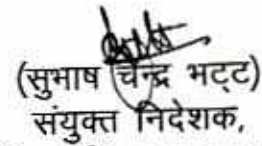 (सुभाष चन्द्र भट्ट)
संयुक्त निदेशक,